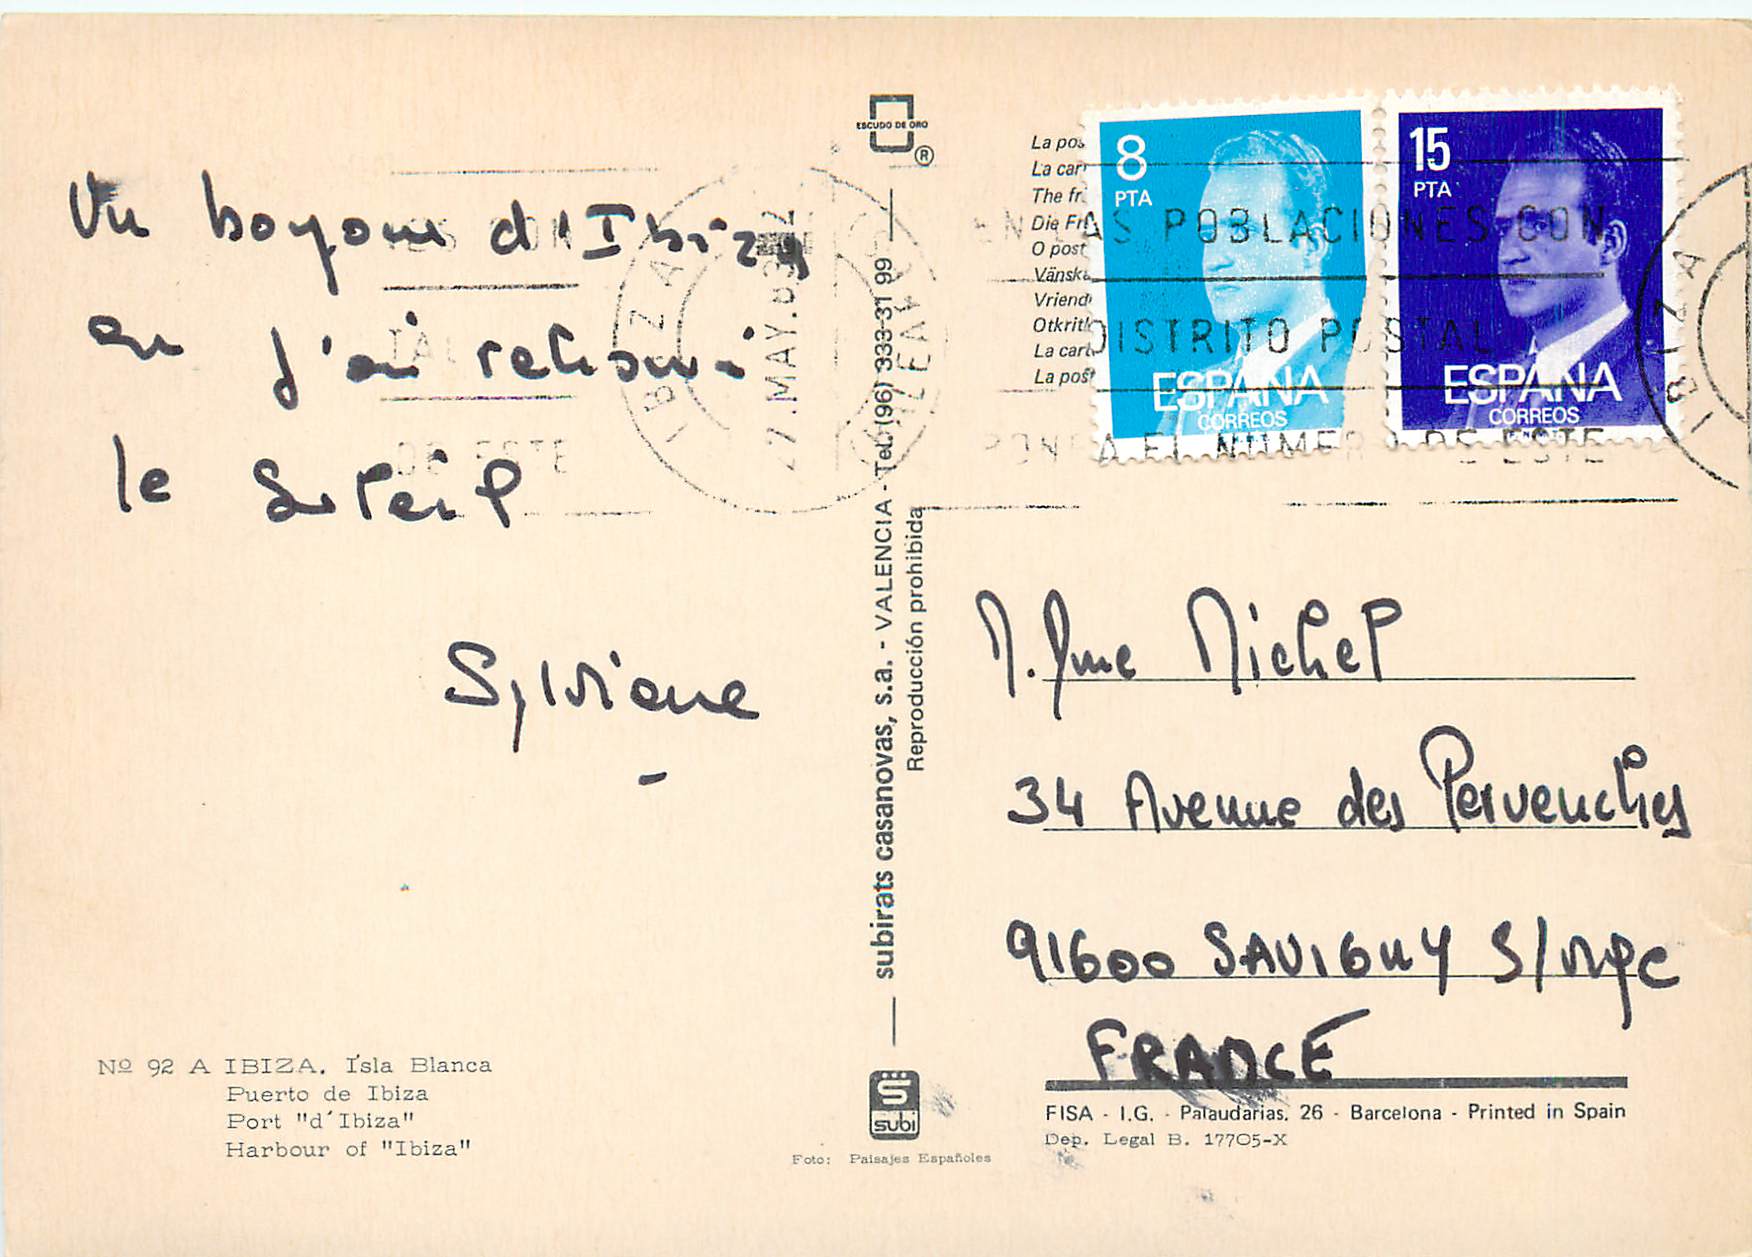 Un bonjour d'Ibiza
ou j'ai retrouvé
le Soleil
Sylviane
Nº 92 A IBIZA. Isla Blanca
Puerto de Ibiza
Port "d'Ibiza"
Harbour of "Ibiza"
ESCUDO DE ORO
®
subirats casanovas, s.a. - VALENCIA - Tel. (96) 333-31 99
Reproducción prohibida
subi
Foto: Paisajes Españoles
La pos
La car
The fr
Die Fr
O post
Vänska
Vriend
Otkritk
La cart
La post
8
PTA
ESPAÑA
CORREOS
15
PTA
ESPAÑA
CORREOS
EN LAS POBLACIONES CON
DISTRITO POSTAL
PONGA EL NUMERO DE ESTE
IBIZA
27.MAY.83
BALEARES
DE ESTE
IBIZA
M. Mme Michel
34 Avenue des Pervenches
91600 SAVIGNY S/ORGE
FRANCE
FISA - I.G. - Palaudarias, 26 - Barcelona - Printed in Spain
Dep. Legal B. 17705-X